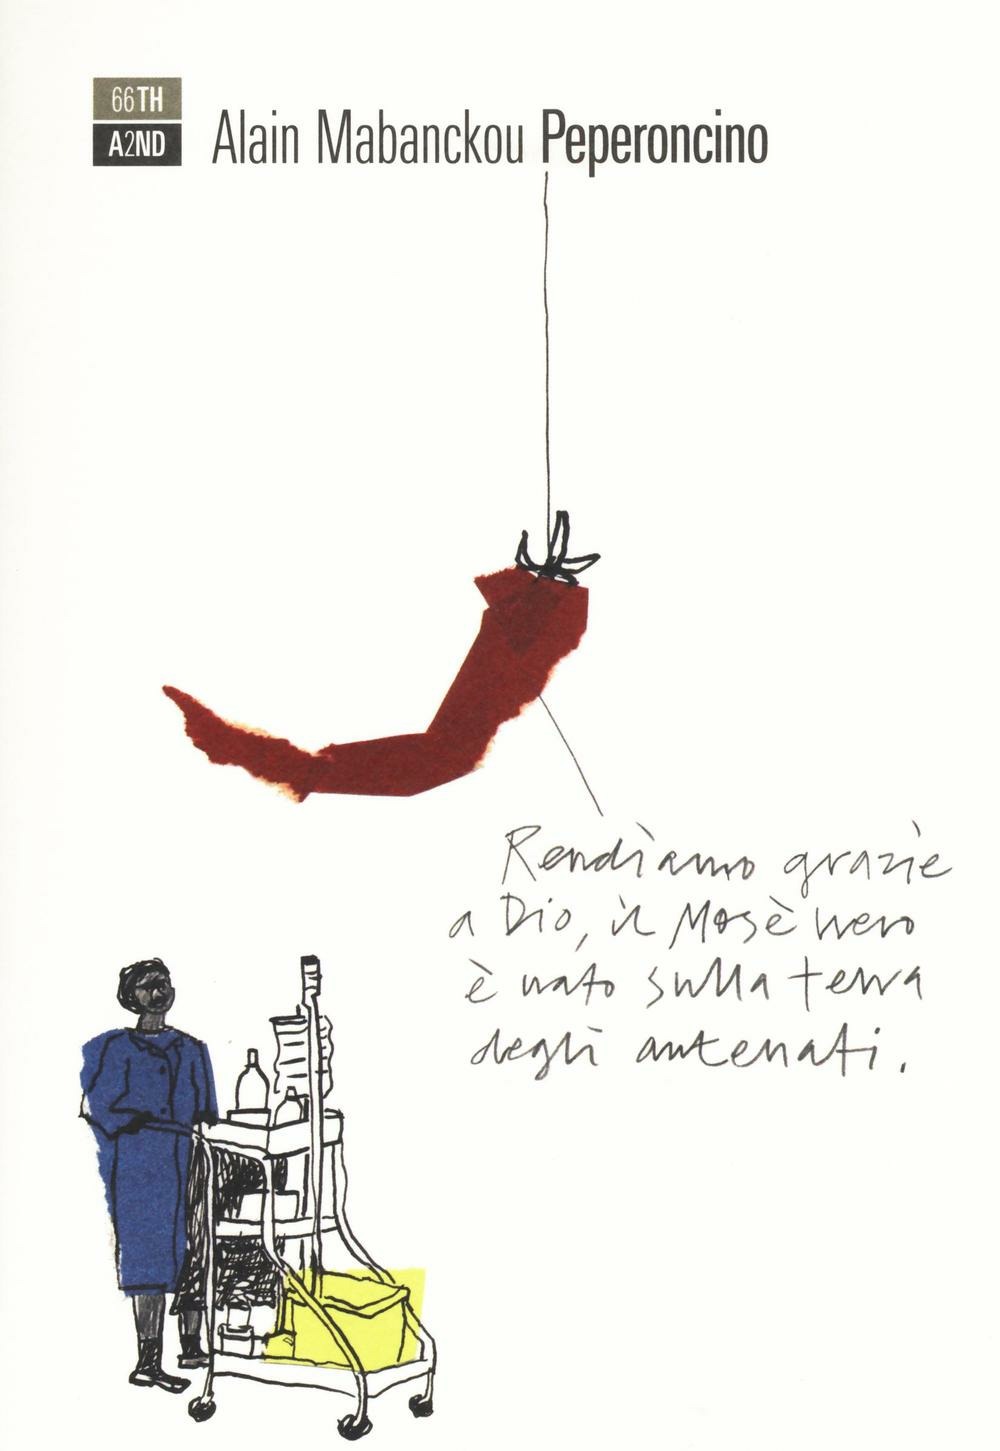 66TH
A2ND
Alain Mabanckou Peperoncino
Rendiamo grazie
a Dio, il Mosè nero
è nato sulla terra
degli antenati.